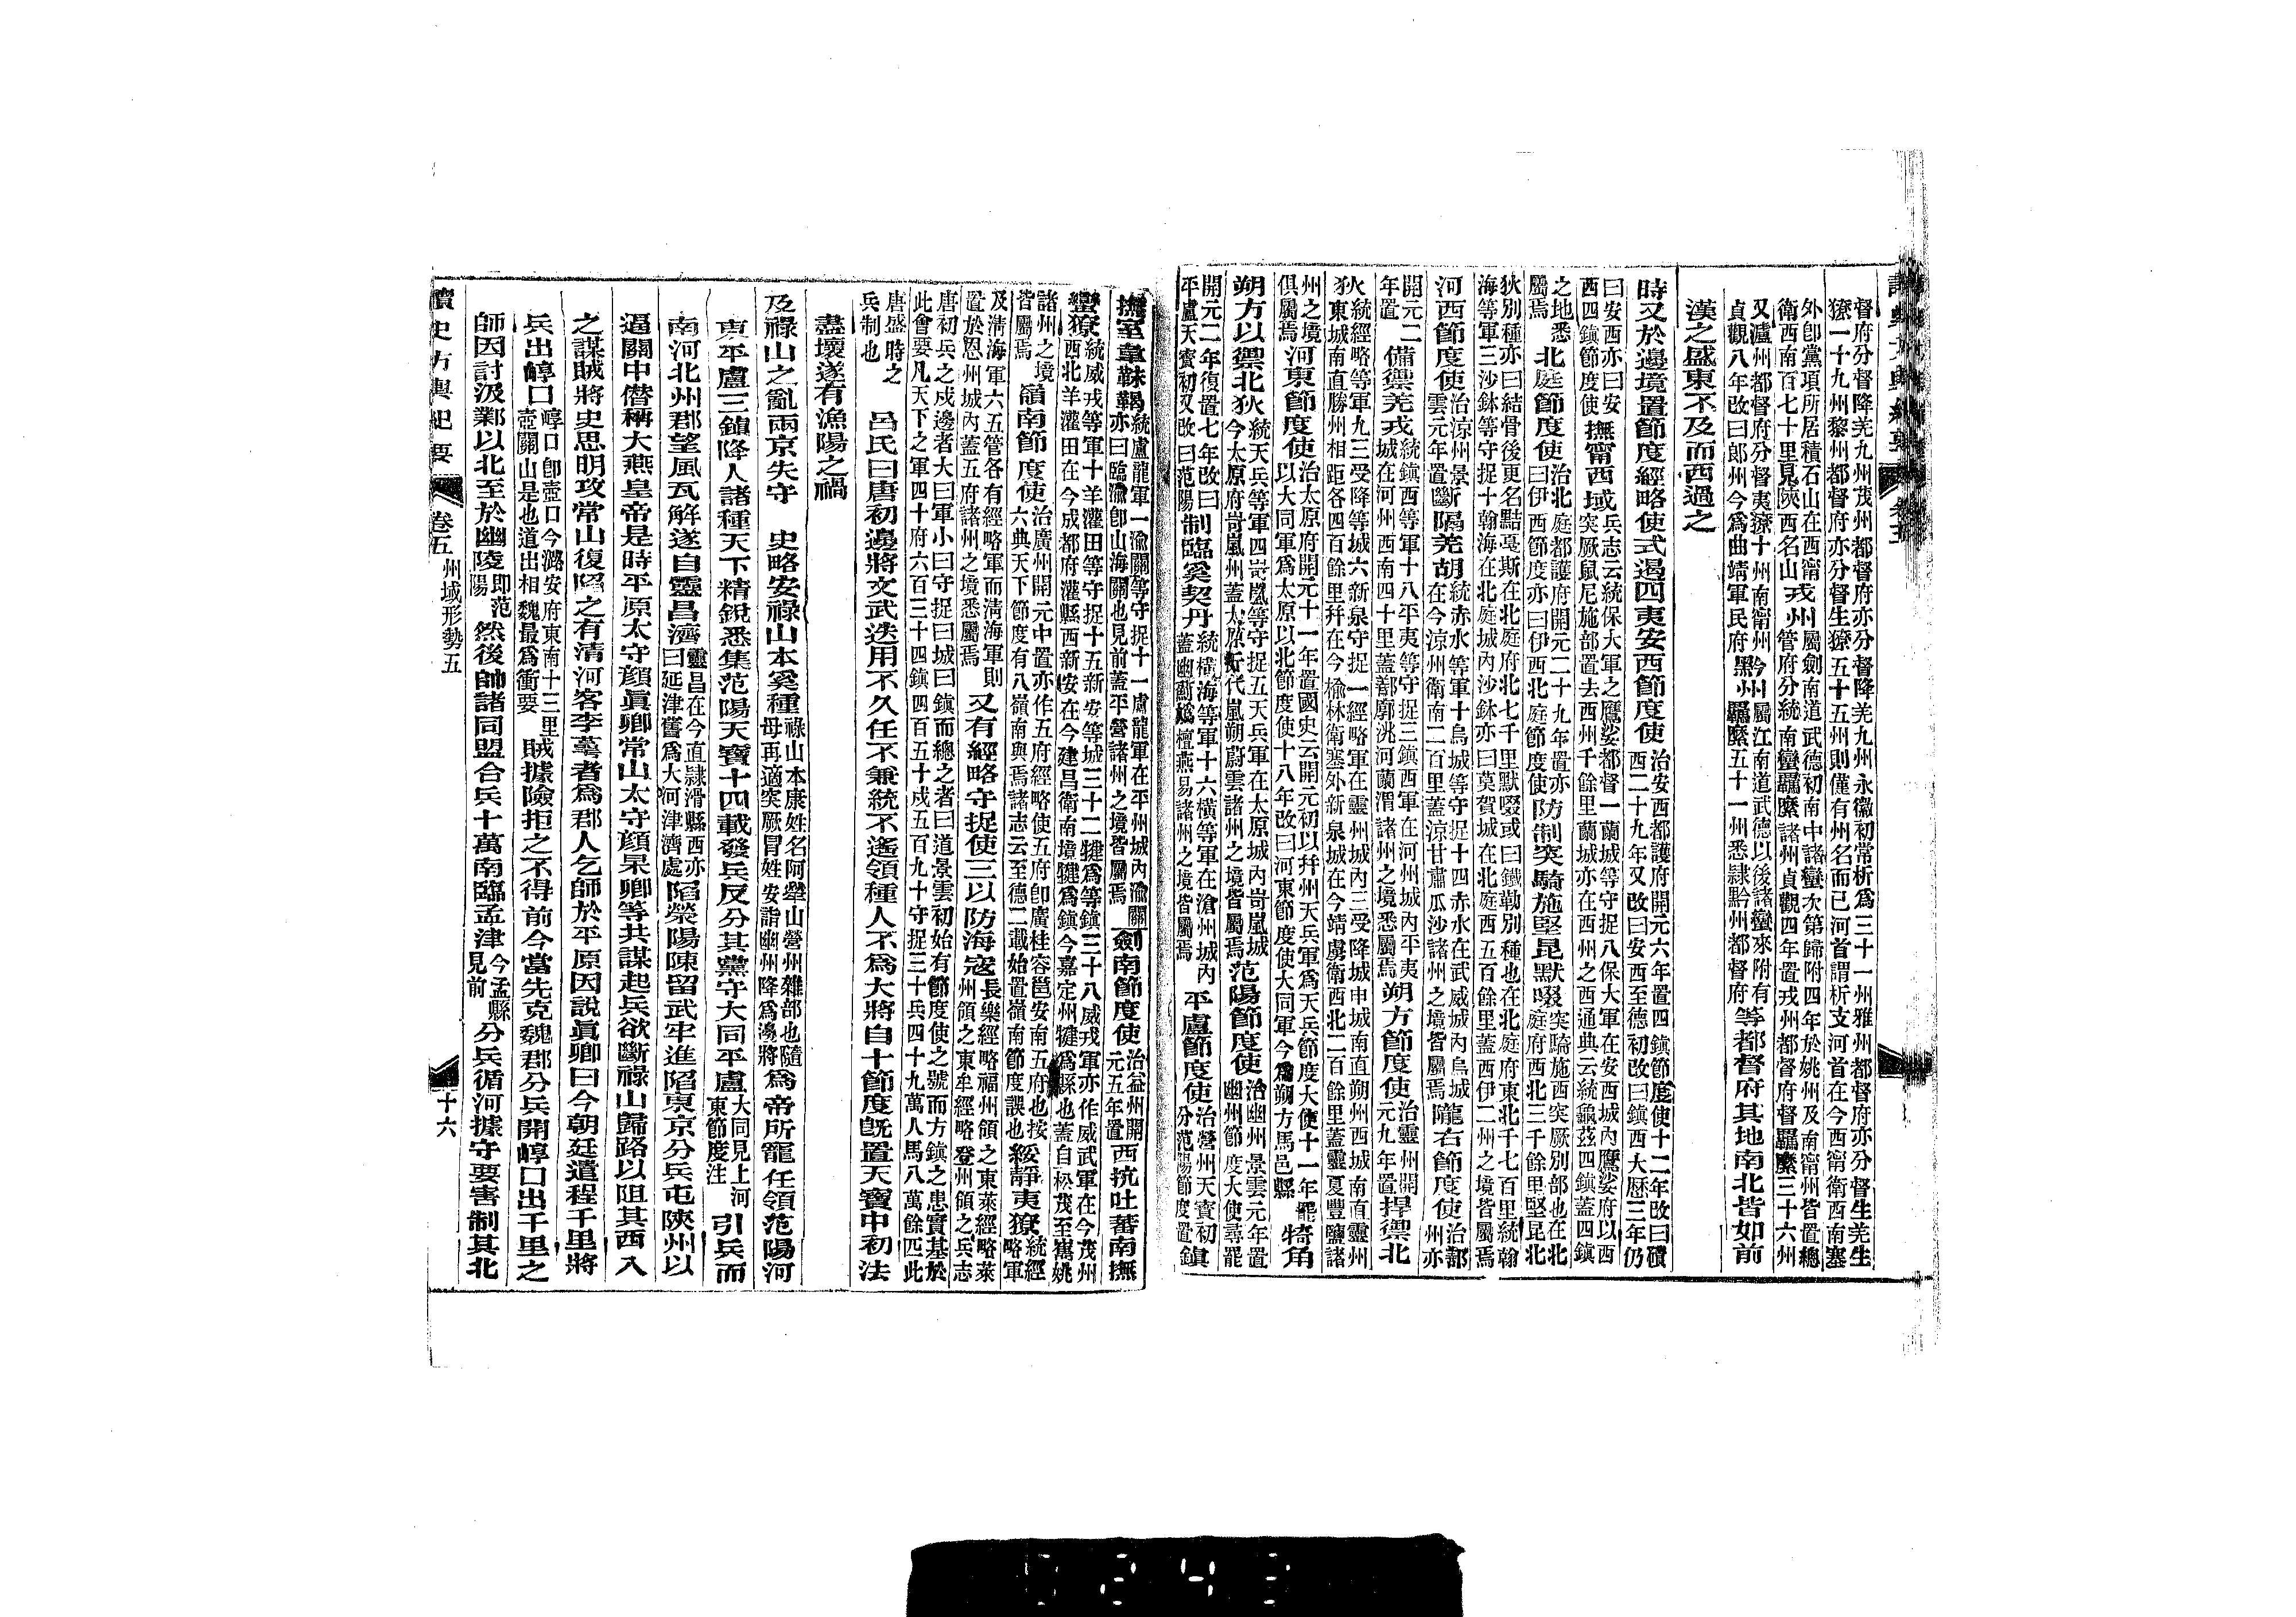 督府分督降羌九州茂州都督府亦分督降羌九州永徽初常析爲三十一州雅州都督府亦分督生羌生
獠一十九州黎州都督府亦分督生獠五十五州則僅有州名而已河首謂析支河首在今西甯衛西南塞
外卽黨項所居積石山在西甯 戎州屬劍南道武德初南中諸蠻次第歸附四年於姚州及南甯州皆置總
衛西南百七十里見陝西名山 管府分統南蠻羈縻諸州貞觀四年置戎州都督府督羈縻三十六州
又瀘州都督府分督夷獠十州南甯州 黔州屬江南道武德以後諸蠻來附有
貞觀八年改曰郎州今爲曲靖軍民府 羈縻五十一州悉隷黔州都督府 等都督府其地南北皆如前
漢之盛東不及而西過之
時又於邊境置節度經略使式遏四夷安西節度使治安西都護府開元六年置四鎮節度使十二年改曰磧
西二十九年又改曰安西至德初改曰鎮西大歷三年仍
曰安西亦曰安 撫甯西域 兵志云統保大軍之鷹娑都督一蘭城等守捉八保大軍在安西城內鷹娑府以西
西四鎮節度使 突厥鼠尼施部置去西州千餘里蘭城亦在西州之西通典云統龜茲四鎮蓋四鎮
之地悉 北庭節度使治北庭都護府開元二十九年置亦
屬焉 曰伊西節度亦曰伊西北庭節度使 防制突騎施堅昆默啜突騎施西突厥別部也在北
庭府西北三千餘里堅昆北
狄別種亦曰結骨後更名黠戞斯在北庭府北七千里默啜或曰鐵勒別種也在北庭府東北千七百里統翰
海等軍三沙鉢等守捉十翰海在北庭城內沙鉢亦曰莫賀城在北庭西五百餘里蓋西伊二州之境皆屬焉
河西節度使治涼州景
雲元年置 斷隔羌胡統赤水等軍十烏城等守捉十四赤水在武威城內烏城
在今涼州衛南二百里蓋涼甘肅瓜沙諸州之境皆屬焉 隴右節度使治鄯
州亦
開元二 備禦羌戎統鎮西等軍十八平夷等守捉三鎮西軍在河州城內平夷
年置 城在河州西南四十里蓋鄯廓洮河蘭渭諸州之境悉屬焉 朔方節度使治靈州開
元九年置 捍禦北
狄統經略等軍九三受降等城六新泉守捉一經略軍在靈州城內三受降城中城南直朔州西城南直靈州
東城南直勝州相距各四百餘里幷在今榆林衛塞外新泉城在今靖虜衛西北二百餘里蓋靈夏豐鹽諸
州之境 河東節度使治太原府開元十一年置國史云開元初以幷州天兵軍爲天兵節度大使十一年罷
俱屬焉 以大同軍爲太原以北節度使十八年改曰河東節度使大同軍今爲朔方馬邑縣 犄角
朔方以禦北狄統天兵等軍四岢嵐等守捉五天兵軍在太原城內岢嵐城
今太原府岢嵐州蓋太原忻代嵐朔蔚雲諸州之境皆屬焉 范陽節度使治幽州景雲元年置
幽州節度大使尋罷
開元二年復置七年改曰
平盧天寶初又改曰范陽 制臨奚契丹統橫海等軍十六橫等軍在滄州城內
蓋幽薊嬀檀燕易諸州之境皆屬焉 平盧節度使治營州天寶初
分范陽節度置 鎮
撫室韋靺鞨統盧龍軍一渝關等守捉十一盧龍軍在平州城內渝關
亦曰臨渝卽山海關也見前蓋平營諸州之境皆屬焉 劍南節度使治益州開
元五年置 西抗吐蕃南撫
蠻獠統威戎等軍十羊灌田等守捉十五新安等城三十二犍爲等鎮三十八威戎軍亦作威武軍在今茂州
西北羊灌田在今成都府灌縣西新安在今建昌衛南境犍爲鎮今嘉定州犍爲縣也蓋自松茂至嶲姚
諸州之境 嶺南節度使治廣州開元中置亦作五府經略使五府卽廣桂容邕安南五府也按
皆屬焉 六典天下節度有八嶺南與焉諸志云至德二載始置嶺南節度誤也 綏靜夷獠統經
略軍
及淸海軍六五管各有經略軍而淸海軍則
置於恩州城內蓋五府諸州之境悉屬焉 又有經略守捉使三以防海寇長樂經略福州領之東萊經略萊
州領之東牟經略登州領之兵志
唐初兵之戍邊者大曰軍小曰守捉曰城曰鎮而總之者曰道景雲初始有節度使之號而方鎮之患實基於
此會要凡天下之軍四十府六百三十四鎮四百五十戍五百九十守捉三十兵四十九萬人馬八萬餘匹此
唐盛時之
兵制也 呂氏曰唐初邊將文武迭用不久任不兼統不遙領種人不爲大將自十節度旣置天寶中初法
盡壞遂有漁陽之禍
及祿山之亂兩京失守 史略安祿山本奚種祿山本康姓名阿犖山營州雜部也隨
母再適突厥冒姓安詣幽州降爲邊將 爲帝所寵任領范陽河
東平盧三鎮降人諸種天下精銳悉集范陽天寶十四載發兵反分其黨守大同平盧大同見上河
東節度注 引兵而
南河北州郡望風瓦解遂自靈昌濟靈昌在今直隸滑縣西亦
曰延津舊爲大河津濟處 陷滎陽陳留武牢進陷東京分兵屯陝州以
逼關中僭稱大燕皇帝是時平原太守顏眞卿常山太守顏杲卿等共謀起兵欲斷祿山歸路以阻其西入
之謀賊將史思明攻常山復陷之有清河客李蕚者爲郡人乞師於平原因說眞卿曰今朝廷遣程千里將
兵出崞口崞口卽壺口今潞安府東南十三里
壺關山是也道出相魏最爲衝要 賊據險拒之不得前今當先克魏郡分兵開崞口出千里之
師因討汲鄴以北至於幽陵卽范
陽 然後帥諸同盟合兵十萬南臨孟津今孟縣
見前 分兵循河據守要害制其北
讀史方輿紀要 卷五 州域形勢五 十六